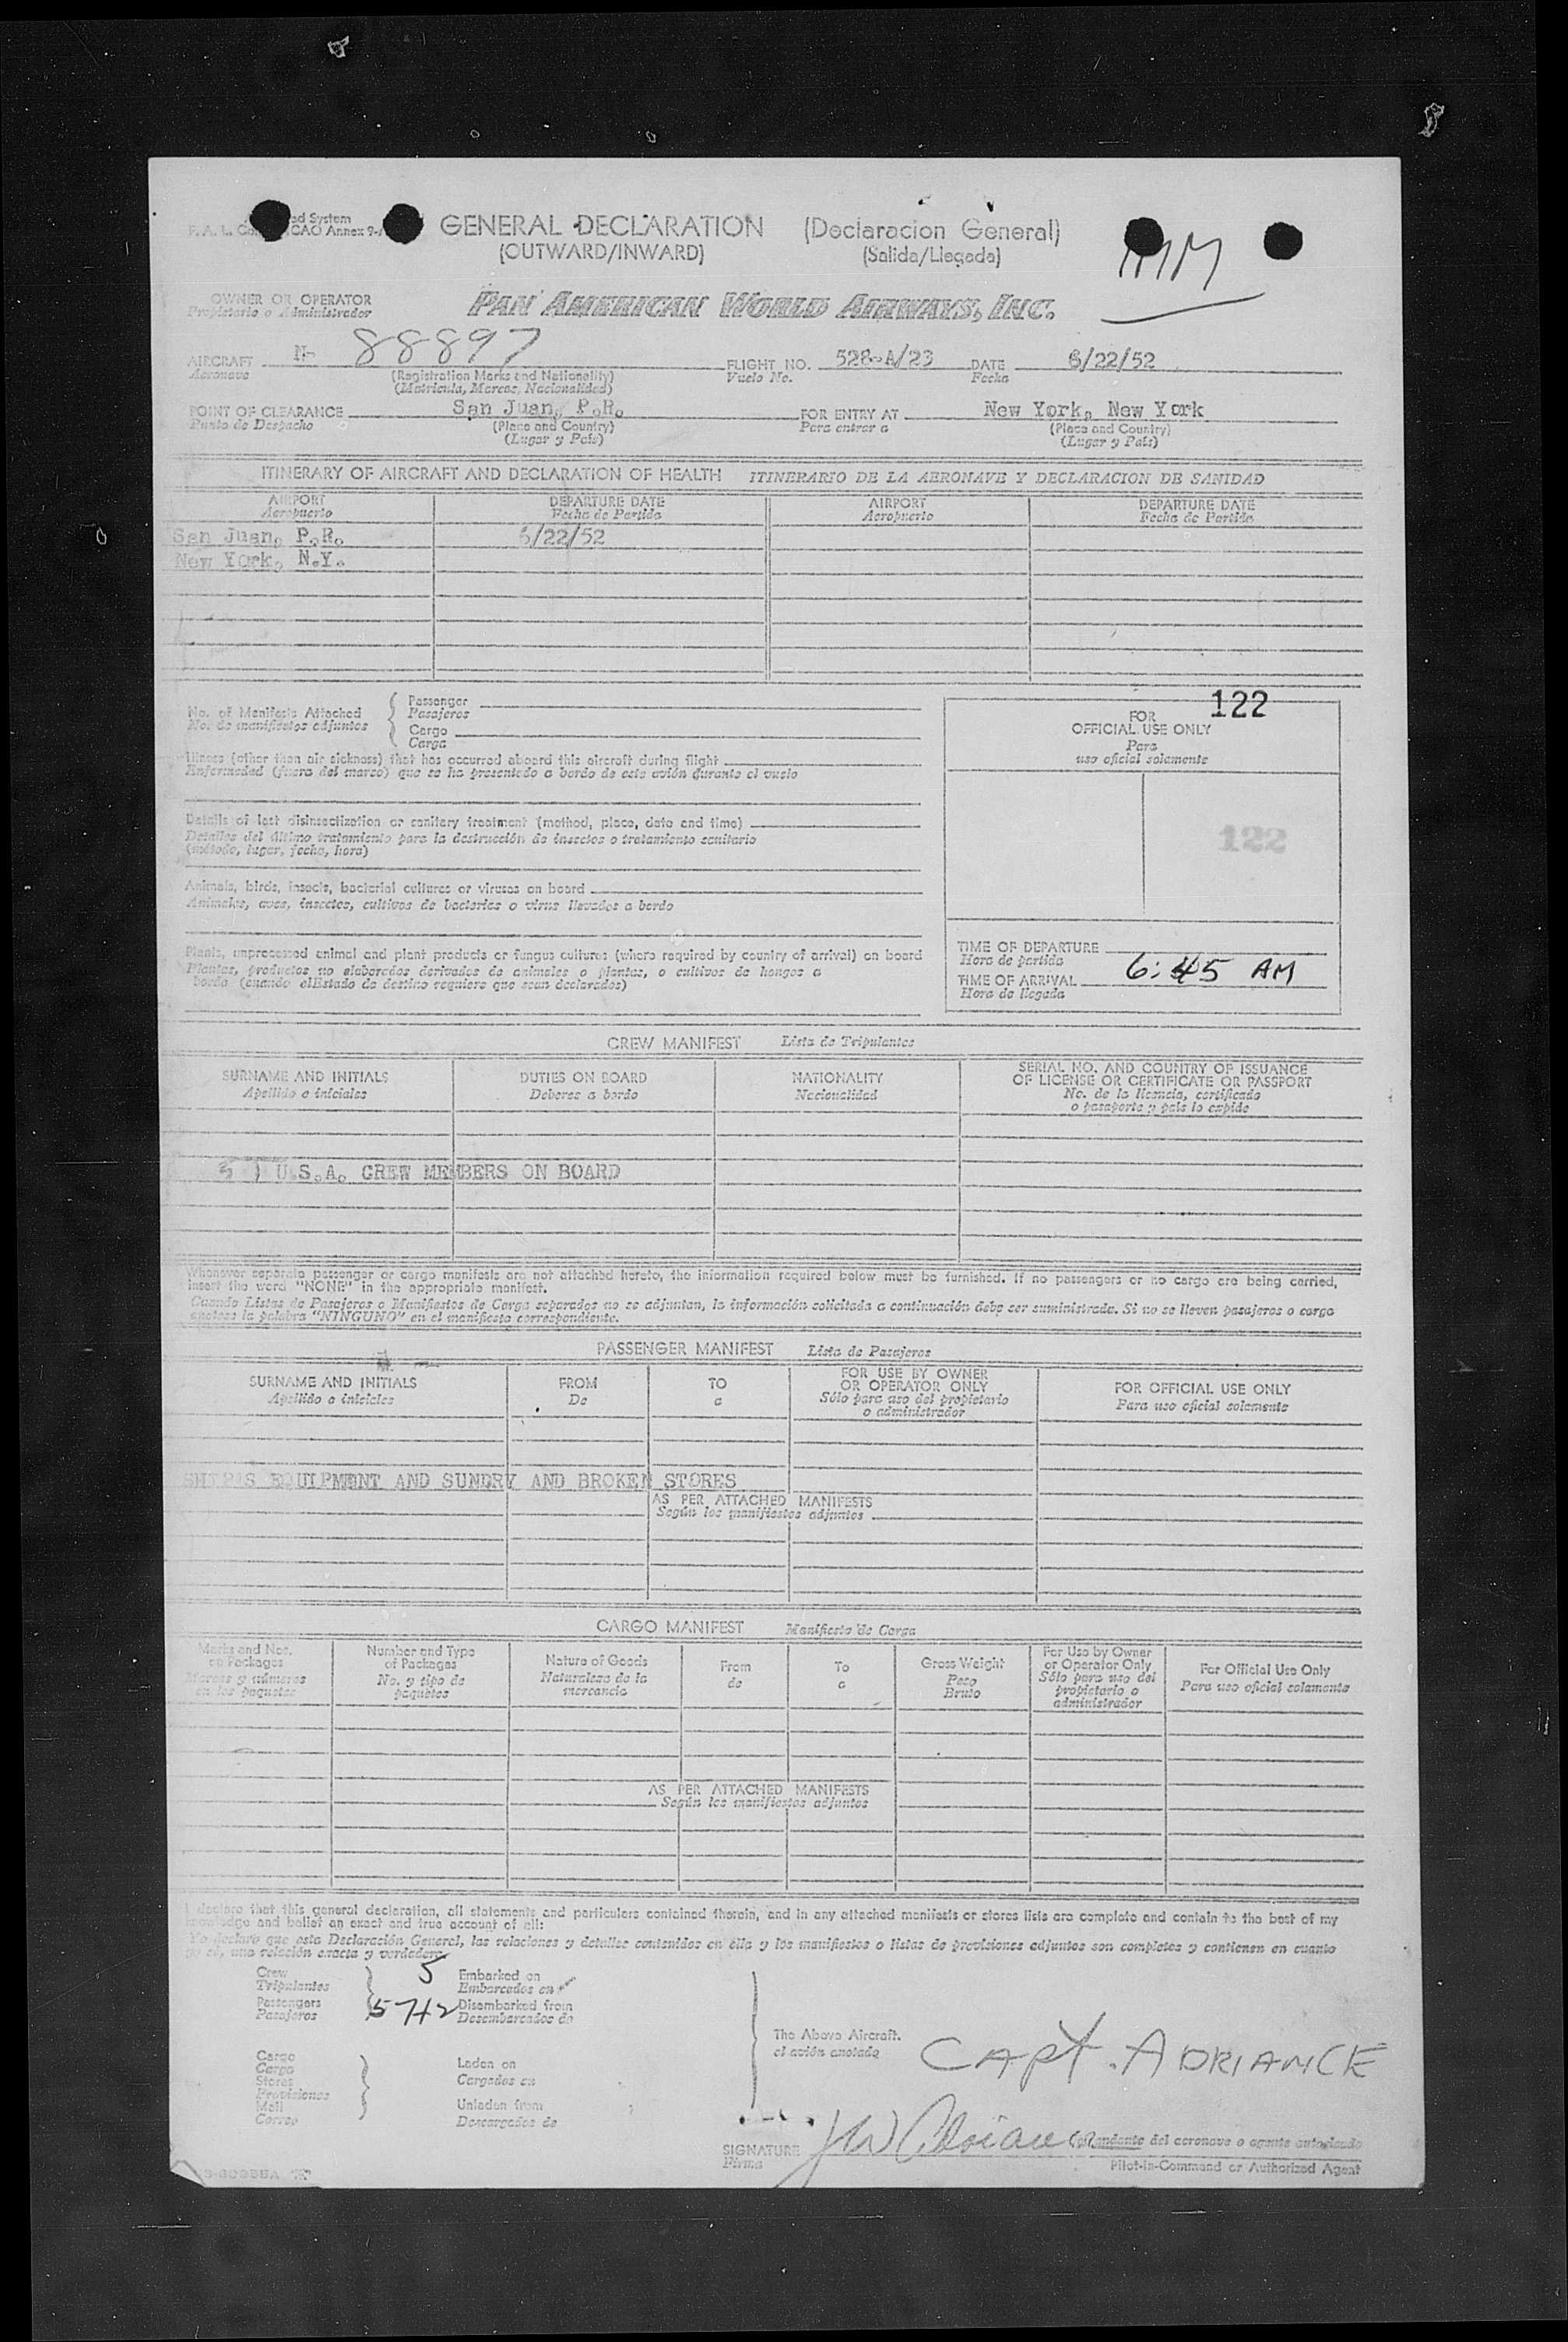 GENERAL DECLARATION (Declaracion General)
(OUTWARD/INWARD) (Salida/Llegada)
MM
OWNER OR OPERATOR PAN AMERICAN WORLD AIRWAYS, INC.
Propietario o Administrador
AIRCRAFT N- 88897 FLIGHT NO. 528-A/23 DATE 6/22/52
Aeronave (Registration Marks and Nationality) Vuelo No. Fecha
(Matricula, Marcas, Nacionalidad)
POINT OF CLEARANCE San Juan, P.R. FOR ENTRY AT New York, New York
Punto de Despacho (Place and Country) Para entrar a (Place and Country)
(Lugar y País) (Lugar y País)
ITINERARY OF AIRCRAFT AND DECLARATION OF HEALTH ITINERARIO DE LA AERONAVE Y DECLARACION DE SANIDAD
AIRPORT DEPARTURE DATE AIRPORT DEPARTURE DATE
Aeropuerto Fecha de Partida Aeropuerto Fecha de Partida
San Juan, P.R. 6/22/52
New York, N.Y.
No. of Manifests Attached Passenger
No. de manifiestos adjuntos Pasajeros
Cargo
Carga
122
FOR
OFFICIAL USE ONLY
Para
uso oficial solamente
Illness (other than air sickness) that has occurred aboard this aircraft during flight
Enfermedad (fuera del mareo) que se ha presentado a bordo de este avión durante el vuelo
Details of last disinsectization or sanitary treatment (method, place, date and time)
Detalles del último tratamiento para la destrucción de insectos o tratamiento sanitario
(método, lugar, fecha, hora)
122
Animals, birds, insects, bacterial cultures or viruses on board
Animales, aves, insectos, cultivos de bacterias o virus llevados a bordo
Plants, unprocessed animal and plant products or fungus cultures (where required by country of arrival) on board
Plantas, productos no elaborados derivados de animales o plantas, o cultivos de hongos a
bordo (cuando elEstado de destino requiere que sean declarados)
TIME OF DEPARTURE
Hora de partida
TIME OF ARRIVAL 6:45 AM
Hora de llegada
CREW MANIFEST Lista de Tripulantes
SURNAME AND INITIALS DUTIES ON BOARD NATIONALITY SERIAL NO. AND COUNTRY OF ISSUANCE
OF LICENSE OR CERTIFICATE OR PASSPORT
Apellido e iniciales Deberes a bordo Nacionalidad No. de la licencia, certificado
o pasaporte y país lo expide
5 ) U.S.A. CREW MEMBERS ON BOARD
Whenever separate passenger or cargo manifests are not attached hereto, the information required below must be furnished. If no passengers or no cargo are being carried,
insert the word "NONE" in the appropriate manifest.
Cuando Listas de Pasajeros o Manifiestos de Carga separados no se adjuntan, la información solicitada a continuación debe ser suministrada. Si no se lleven pasajeros o carga
anótese la palabra "NINGUNO" en el manifiesto correspondiente.
PASSENGER MANIFEST Lista de Pasajeros
SURNAME AND INITIALS FROM TO FOR USE BY OWNER
OR OPERATOR ONLY FOR OFFICIAL USE ONLY
Apellido e iniciales De a Sólo para uso del propietario
o administrador Para uso oficial solamente
SHIP'S EQUIPMENT AND SUNDRY AND BROKEN STORES
AS PER ATTACHED MANIFESTS
Según los manifiestos adjuntos
CARGO MANIFEST Manifiesto de Carga
Marks and Nos.
on Packages
Marcas y números
en los paquetes
Number and Type
of Packages
No. y tipo de
paquetes
Nature of Goods
Naturaleza de la
mercancía
From
de
To
a
Gross Weight
Peso
Bruto
For Use by Owner
or Operator Only
Sólo para uso del
propietario o
administrador
For Official Use Only
Para uso oficial solamente
AS PER ATTACHED MANIFESTS
Según los manifiestos adjuntos
I declare that this general declaration, all statements and particulars contained therein, and in any attached manifests or stores lists are complete and contain to the best of my
knowledge and belief an exact and true account of all:
Yo declaro que esta Declaración General, las relaciones y detalles contenidos en ella y los manifiestos o listas de provisiones adjuntos son completos y contienen en cuanto
yo sé, una relación exacta y verdadera
Crew 5 Embarked on
Tripulantes Embarcados en
Passengers 57+2 Disembarked from
Pasajeros Desembarcados de
The Above Aircraft.
el avión anotado
CAPT. ADRIANCE
Cargo
Carga
Stores
Provisiones
Mail
Correo
Laden on
Cargados en
Unladen from
Descargados de
SIGNATURE JW Adriance del aeronave o agente autorizado
Firma Pilot-in-Command or Authorized Agent